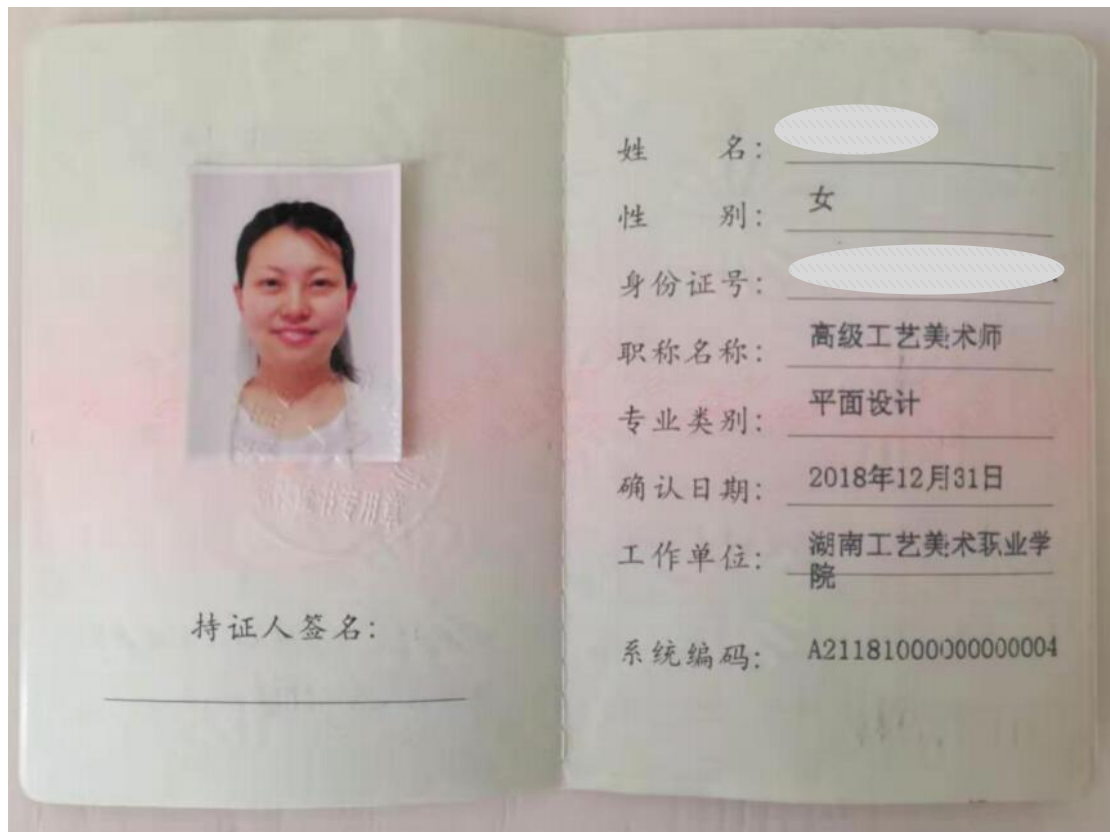 持证人签名：
姓名：
性别：女
身份证号：
职称名称：高级工艺美术师
专业类别：平面设计
确认日期：2018年12月31日
工作单位：湖南工艺美术职业学
院
系统编码：A211810000000000004